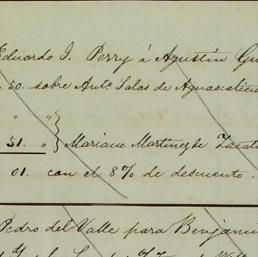 Eduardo J. Perry á Agustin Gu
. 50. sobre Anto. Salas de Aguascalien
" "
51. " } Mariano Martinez de Zacate
01. con el 8% de descuento.
Pedro del Valle para Benjami